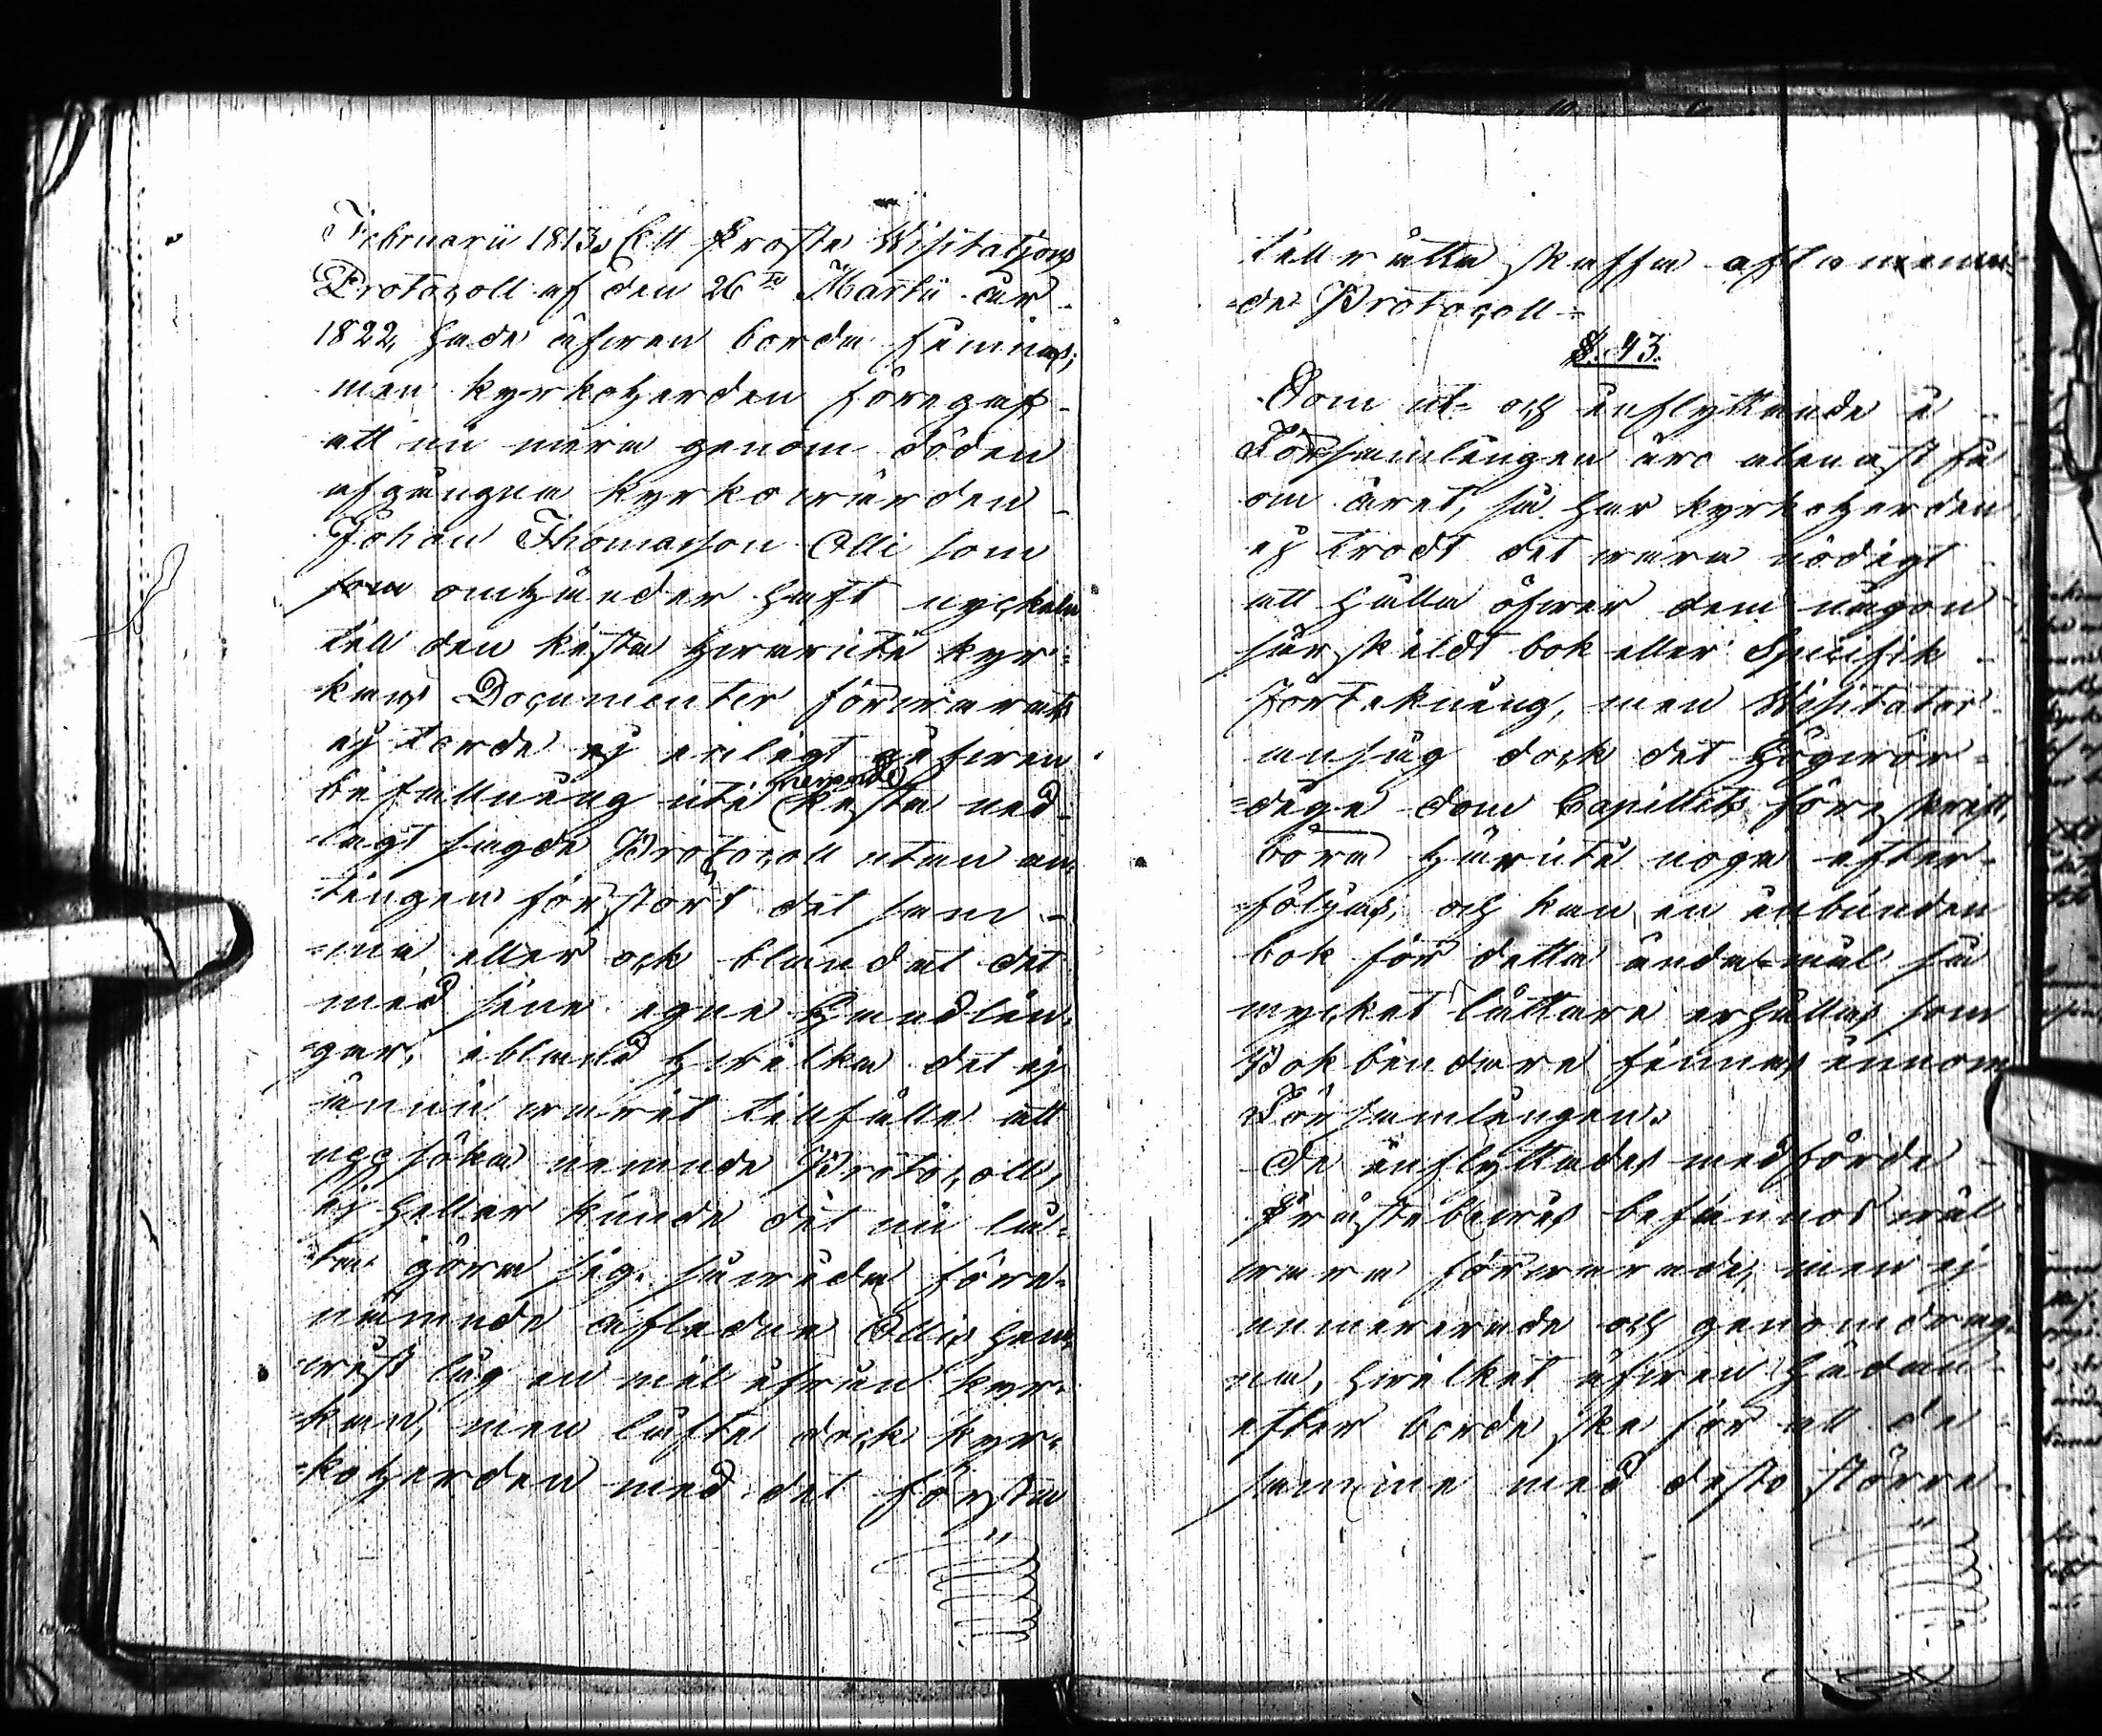 Februarii 1813. Ett Proste Wisitations
Protocoll af den 26te Martii år
1822, hade äfwen bordt finnas;
men kyrkoherden föregaf
att nu mera genom döden
afgångna kyrkowärden
Johan Thomasson Olli som
som omhänder haft nyckeln
till den kista hwaruti kyr=
kans Documenter förwarats
ej torde ej enligt gifwen
befallning uti nemnde kista ned=
lagt sagde Protocoll utan an=
tingen förstört det sam=
=ma eller ock blandat det
med sina egna Handlin=
=gar, ibland hwilka det ej
ännu warit tillfälle att
uppsöka nemnde Protocoll,
ej heller kunde det nu lå=
ta göra sig, såwida före=
nämnde aflednes Ollis hem=
wist låg en mil ifrån kyr=
kan, men lofte dock kyr=
=koherden med det första
tillrätta skaffa oftanemn=
=de Protocoll.=
§. 43.
Som ut= och inflyttande i
Församlingen äro allenast få
om året, så har kyrkoherden
ej trodt det wara nödigt
att hålla öfwer dem någon
särskildt bok eller Specifik
förtekning, men Wisitator
ansåg dock det Högwör=
=dige Dom Capitlets föreskrift,
böra häruti noga efter=
följas, och kan en inbunden
bok för detta ändamål så
mycket lättare erhållas som
Bokbindare finnes innom
Församlingen.
De inflyttades medförde
Prästebewis befunnos wäl
wara förwarade, men ej
numererade och genomdrag=
na, hwilket äfwen hädan=
efter borde ske för att de
samma med desto större